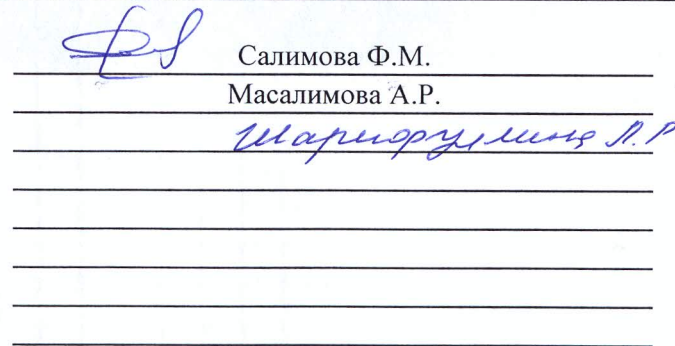 Салимова Ф.М.
Масалимова А.Р.
Шарифуллина Л.Р